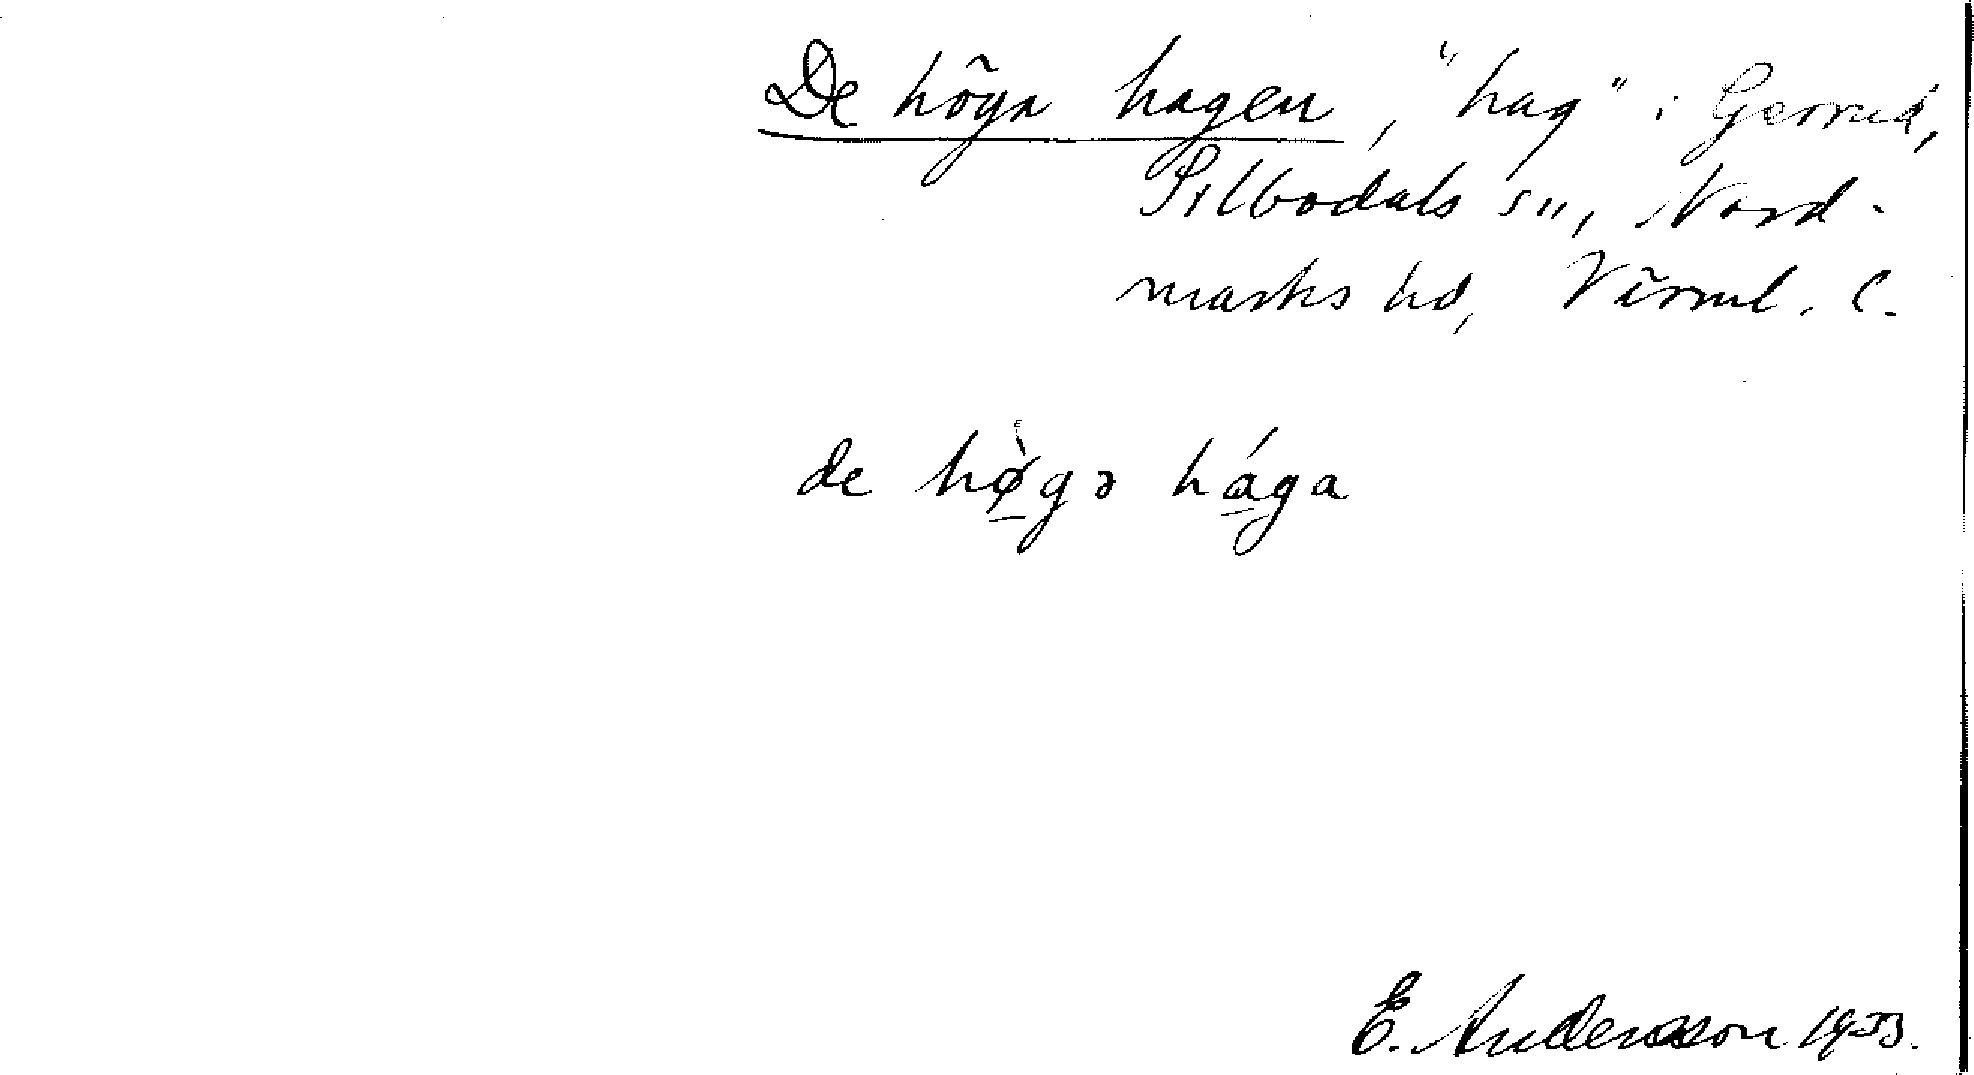 De höga hagen, "hag" i Gerrud,
Silbodals sn, Nord-
marks hd, Värml. l.
de hø̀gə hága
E. Andersson 1933.